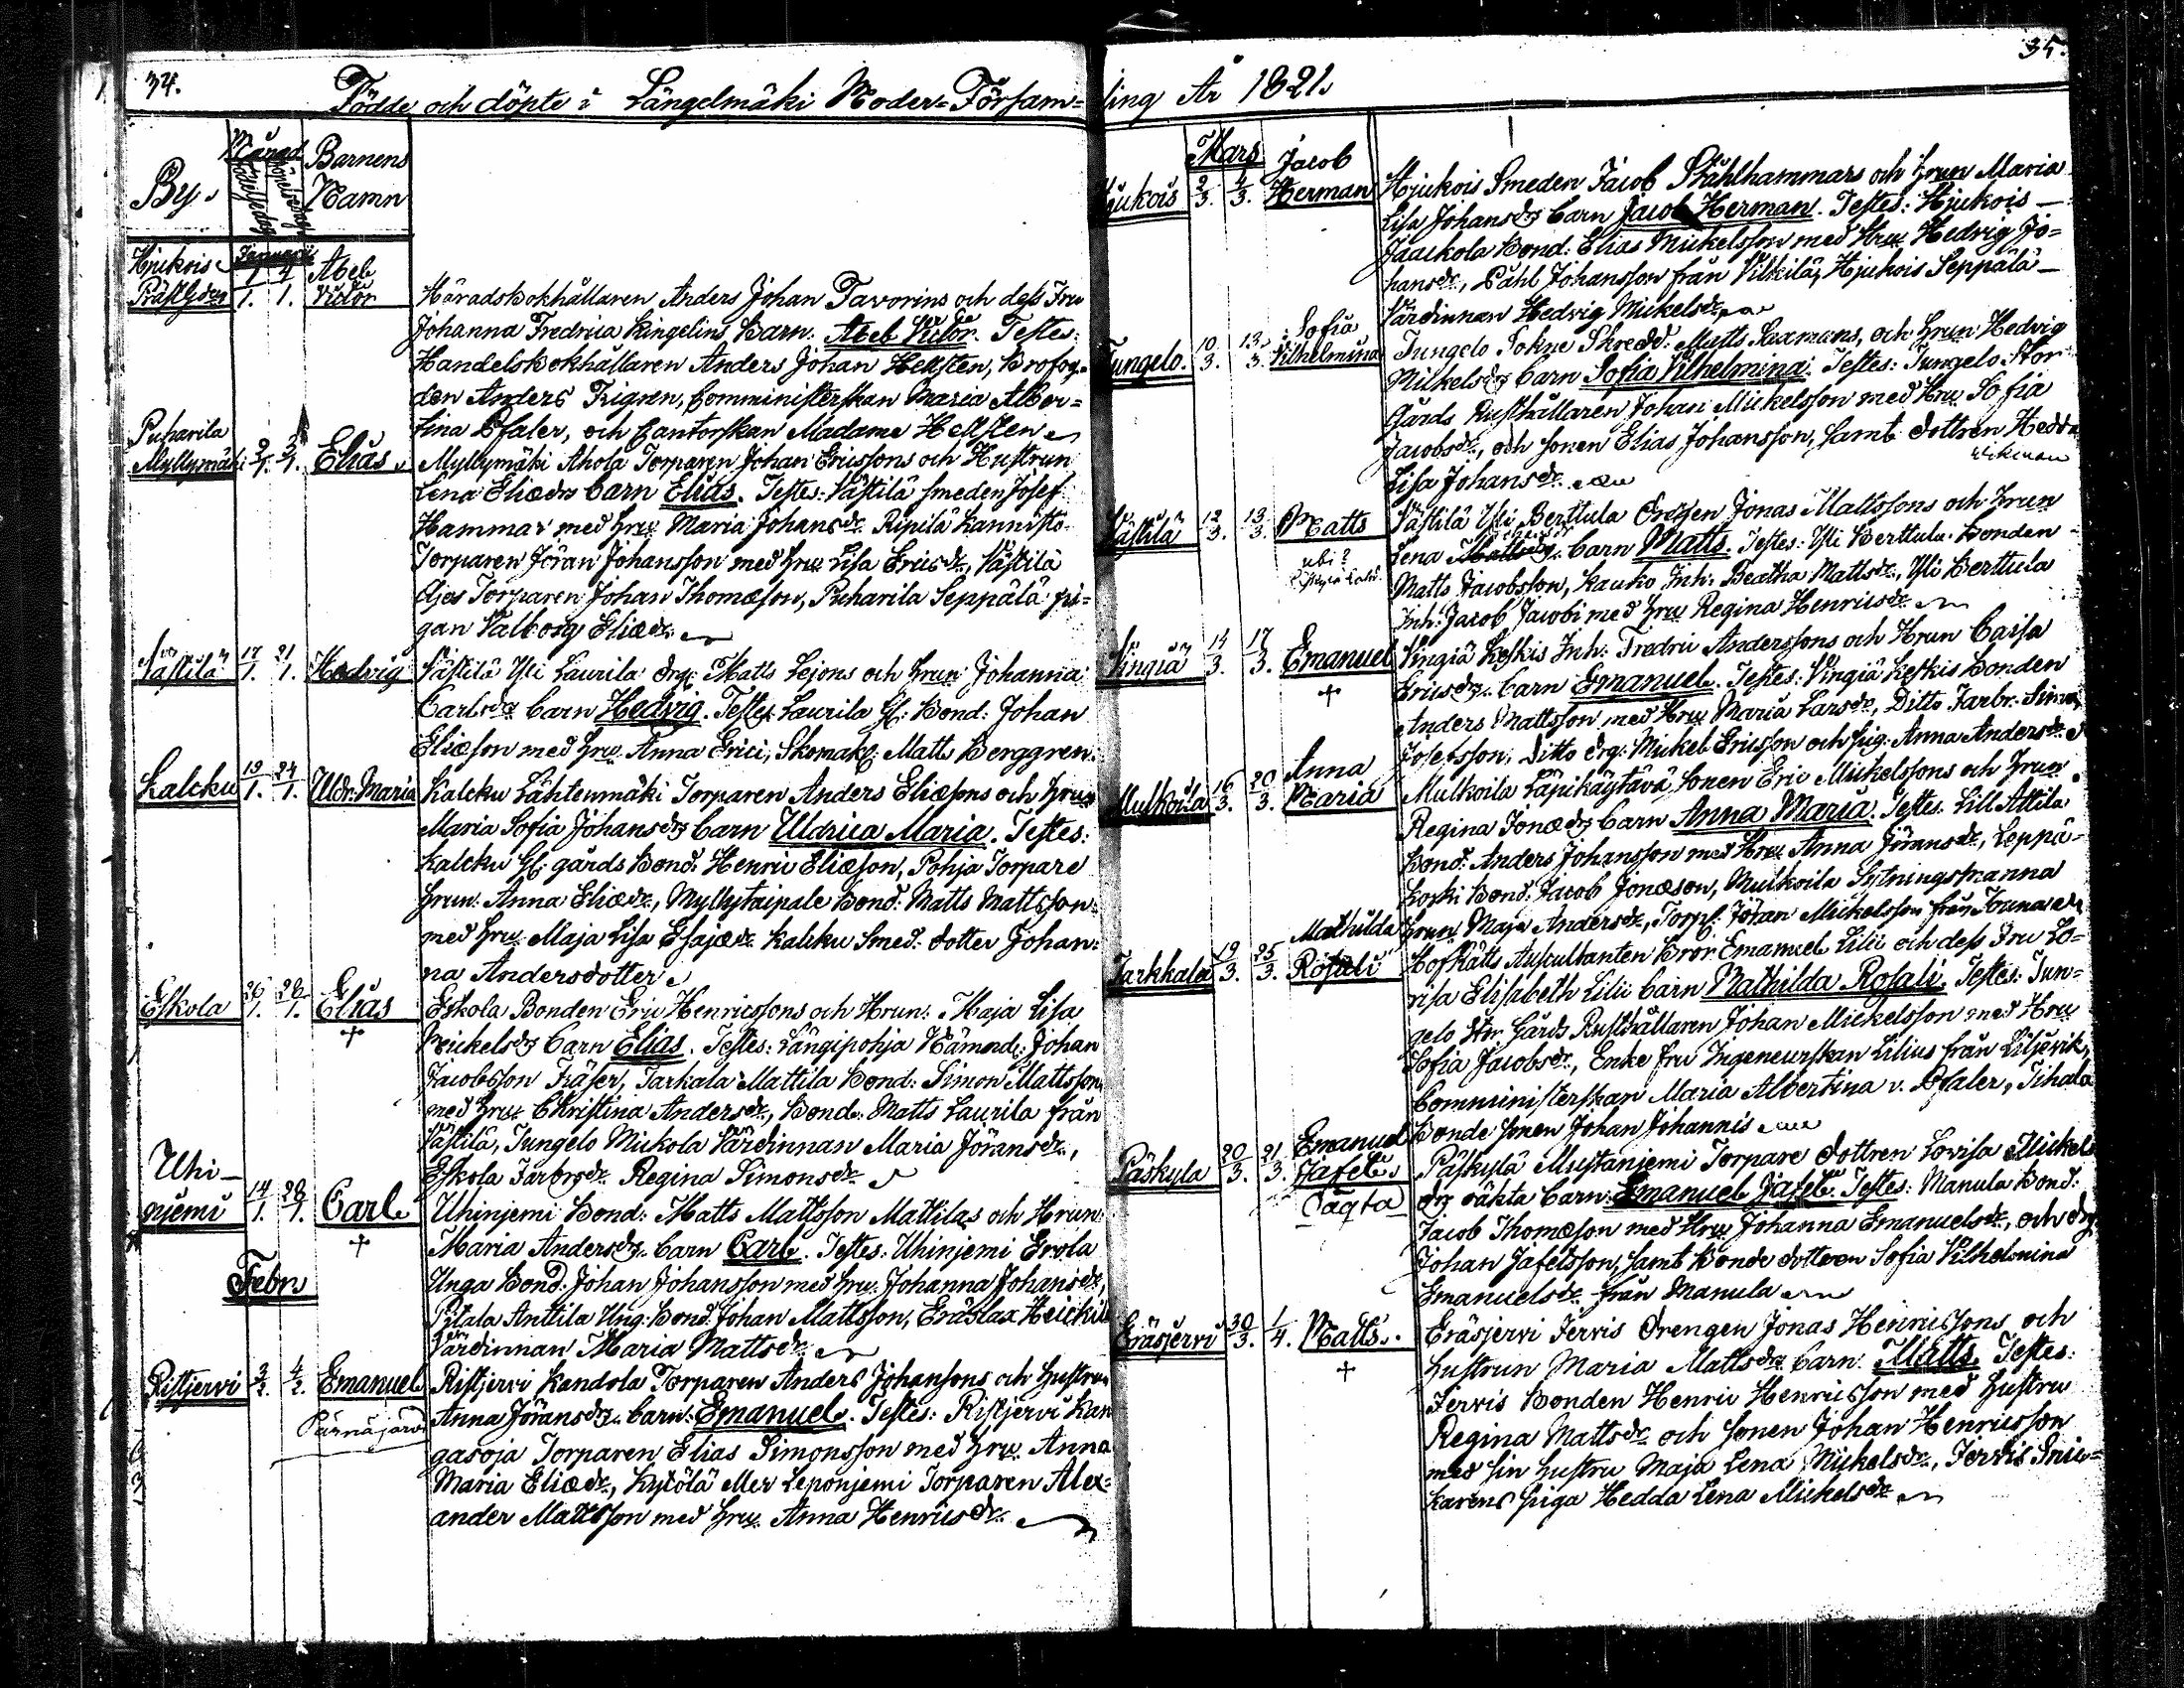 34.
Födde och döpte i Längelmäki Moder-Försam-
By.
Månad
Födelsedag
Döpelsedag
Barnens
Namn
Januarii
Hjukois
Prästgården 1/1. 4/1. Abel
Victor
Häradsbokhållaren Anders Johan Favorins och dess Fru
Johanna Fredrica Ringelins Barn: Abel Victor. Testes:
Handelsbokhållaren Anders Johan Hellsten, Brofog-
den Anders Frigren, Comministerskan Maria Alber-
tina Pfaler, och Cantorskan Madame Hellsten
Puharila
Myllymäki 2/1. 3/1. Elias
Myllymäki Ahola Torparen Johan Ericssons och Hustrun
Lena Eliædrs barn Elias. Testes: Västilä smeden Josef
Hammar med hru Maria Johansdr. Ripilä Kannisto
Torparen Jöran Johansson med hru Lisa Ericsdr., Västilä
Ojos Torparen Johan Thomæson, Puharila Seppälä pi-
gan Valborg Eliædr.
Västilä 17/1. 21/1. Hedvig
Västilä Yli Laurila drg. Matts Lejons och hrun Johanna
Carlsdrs barn Hedvig. Testes Laurila Gl: Bond: Johan
Eliæson med hru Anna Erici, Skomak: Matts Berggren.
Kalcku 19/1. 24/1. Uldr: Maria
Kalcku Lähtenmäki Torparen Anders Eliæsons och hrun
Maria Sofia Johansdrs barn Uldrica Maria. Testes:
Kalcku Gl: gårds Bond: Henric Eliæson, Pohja Torpare
hrun: Anna Eliædr., Myllytaipale Bond: Matts Mattsson
med hru Maja Lisa Esajædr. Kalcku Smed: dotter Johan-
na Andersdotter
Eskola 26/1. 28/1. Elias
†
Eskola Bonden Eric Henricssons och Hrun: Maja Lisa
Mickelsdrs barn Elias. Testes: Längipohja Nämnd: Johan
Jacobsson Fräser, Tarkala Mattila Bond: Simon Mattsson
med hru Christina Andersdr., Bond: Matts Laurila från
Västilä, Tungelo Mickola Värdinnan Maria Jöransdr.,
Eskola Farbrsdr. Regina Simonsdr.
Uhi-
njemi 14/1. 28/1. Carl
†
Uhinjemi Bond: Matts Mattsson Mattilas och Hrun
Maria Andersdrs. barn Carl. Testes: Uhinjemi Erola
Unga Bond: Johan Johansson med hru: Johanna Johansdr.,
Pitala Anttila Ung: Bond: Johan Mattsson, Eräslax Heickilä
Värdinnan Maria Mattsdr.
Febr.
Ristjervi 3/2. 4/2. Emanuel
Pärnäjärvi
Ristjervi Kandola Torparen Anders Johansons och hustrun
Anna Jöransdrs. barn: Emanuel. Testes: Ristjervi Kan
gasoja Torparen Elias Simonsson med hru. Anna
Maria Eliædr., Kytölä eller Leponjemi Torparen Alex-
ander Mattsson med hru Anna Henricsdr.
35.
ling År 1821.
Mars
Hjukois 2/3. 4/3. Jacob
Herman
Hjukois Smeden Jacob Ståhlhammars och hrun Maria
Lisa Johansdrs barn Jacob Herman. Testes: Hjukois
Jaackola Bond: Elias Mickelsson med Hru Hedvig Jo-
hansdr., Påhl Johansson från Vilkilä, Hjukois Seppälä
Värdinnan Hedvig Mickelsdr.
Tungelo. 10/3. 13/3. Sofia
Vilhelmina
Tungelo Sokne Skredd: Matts Laxmans, och hrun Hedvig
Mickelsdrs barn Sofia Vilhelmina. Testes: Tungelo Stor
Gårds Rusthållaren Johan Mickelsson med Hru Sofia
Jacobsdr., och sonen Elias Johansson, samt dottren Hedda
Lisa Johansdr.
Västilä 12/3. 13/3. Matts
ubi?
Västilä Yli Berttula Drängen Jonas Mattssons och hrun
Lena barn Matts. Testes: Yli Berttula Bonden
Matts Jacobsson, Kauko Inh: Beatha Mattsdr., Yli Berttula
Inh: Jacob Jacobi med hru Regina Henricsdr.
Vingiä 14/3. 17/3. Emanuel
†
Vingiä Keskis Inh: Fredric Anderssons och Hrun Caisa
Ericsdrs. barn Emanuel. Testes: Vingiä Keskis Bonden
Anders Mattsson med Hru Maria Larsdr., Ditto Farbr. Simon
Josefsson, ditto drg: Mickel Ericsson och pig: Anna Andersdr.
Mulkoila 16/3. 20/3. Anna
Maria
Mulkoila Läpikäytävä Sonen Eric Mickelssons och hrun
Regina Jonædrs barn Anna Maria. Testes. Lill Attila
Bond: Anders Johansson med Hru Anna Jöransdr., Leppä-
koski Bond: Jacob Jonæson, Mulkoila Sytningsmanna
hrun Maja Andersdr., Torp: Johan Mickelsson från
Tarkkala 19/3. 25/3. Mathilda
Rosali
Hofrätts Auscultanten Bror Emanuel Lilii och dess Fru Lo-
visa Elisabeth Lilii barn Mathilda Rosali. Testes: Tun-
gelo Stor Gårds Rusthållaren Johan Mickelsson med Hru
Sofia Jacobsdr., Enke fru Ingeneurskan Lilius från Liljevik,
Comministerskan Maria Albertina v. Pfaler, Tihala
Bonde sonen Johan Johannis
Päskylä 20/3. 21/3. Emanuel
Jafet
Oägta
Päskylä Mustanjemi Torpare dottren Lovisa Mickels
drs oäkta barn: Emanuel Jafet. Testes: Manula Bond:
Jacob Thomæson med Hru Johanna Emanuelsdr., och drg.
Johan Jafetsson, samt Bonde dottren Sofia Vilhelmina
Emanuelsdr. från Manula
Eräsjervi 30/3. 1/4. Matts.
†
Eräsjervi Jervis Drengen Jonas Henricssons och
hustrun Maria Mattsdrs barn: Matts. Testes:
Jervis Bonden Henric Henricsson med hustru
Regina Mattsdr. och sonen Johan Henricsson
med sin hustru Maja Lena Mickelsdr., Jervis Snic-
karens piga Hedda Lena Mickelsdr.